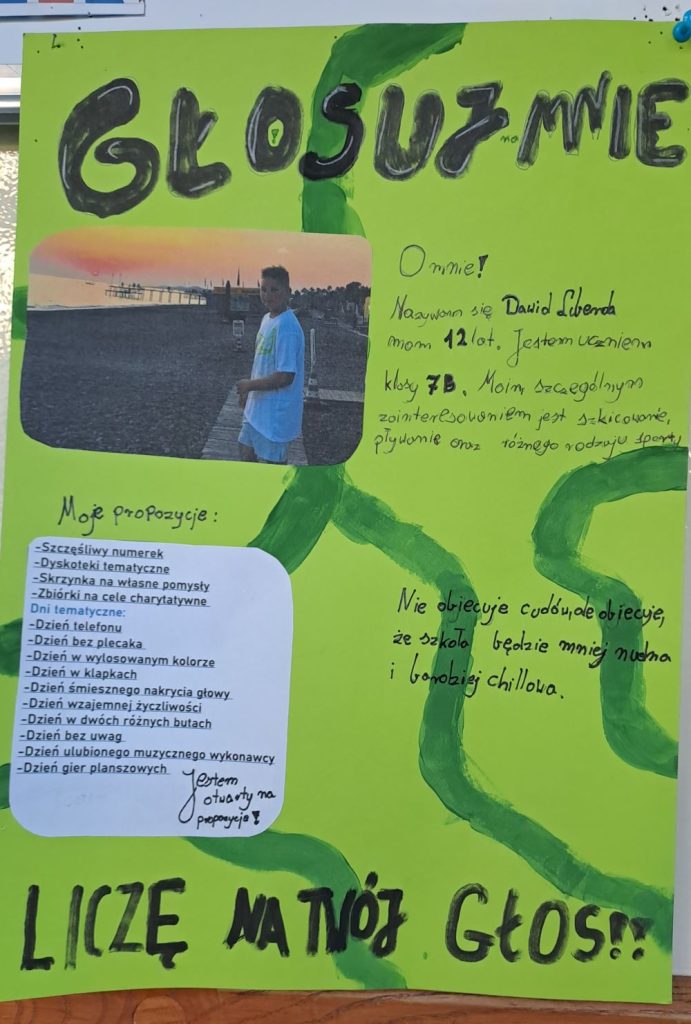 GŁOSUJ na MNIE
O mnie!
Nazywam się Dawid
mam 12 lat. Jestem uczniem
klasy 7B. Moim szczególnym
zainteresowaniem jest szkicowanie,
pływanie oraz różnego rodzaju sporty
Moje propozycje:
-Szczęśliwy numerek
-Dyskoteki tematyczne
-Skrzynka na własne pomysły
-Zbiórki na cele charytatywne
Dni tematyczne:
-Dzień telefonu
-Dzień bez plecaka
-Dzień w wylosowanym kolorze
-Dzień w klapkach
-Dzień śmiesznego nakrycia głowy
-Dzień wzajemnej życzliwości
-Dzień w dwóch różnych butach
-Dzień bez uwag
-Dzień ulubionego muzycznego wykonawcy
-Dzień gier planszowych
Jestem
otwarty na
propozycje!
Nie obiecuje cudów, ale obiecuje,
że szkoła będzie mniej nudna
i bardziej chillowa.
LICZĘ NA TWÓJ GŁOS!!